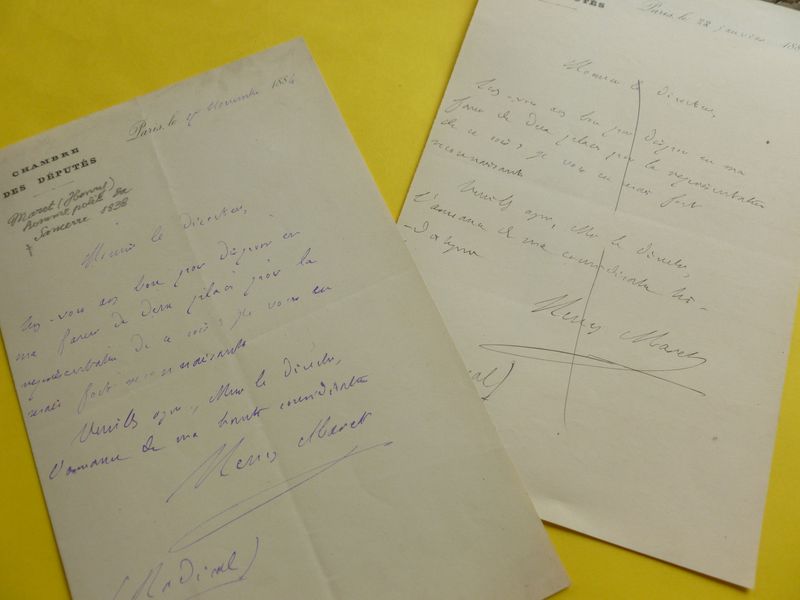 CHAMBRE
DES DÉPUTÉS
Paris, le Novembre 1884
Maret (Henry)
homme polit. de
Sancerre 1838
Monsieur le directeur,
êtes-vous assez bon pour disposer en
ma faveur de deux places pour la
représentation de ce soir; je vous en
serais fort reconnaissant.
Veuillez agréer, Mr le directeur,
l'assurance de ma haute considération
Henry Maret
(Radical)
DÉPUTÉS
Paris, le 22 janvier 188
Monsieur le directeur,
êtes-vous assez bon pour disposer en ma
faveur de deux places pour la représentation
de ce soir; je vous en serais fort
reconnaissant.
Veuillez agréer, Mr le directeur,
l'assurance de ma considération
Henry Maret